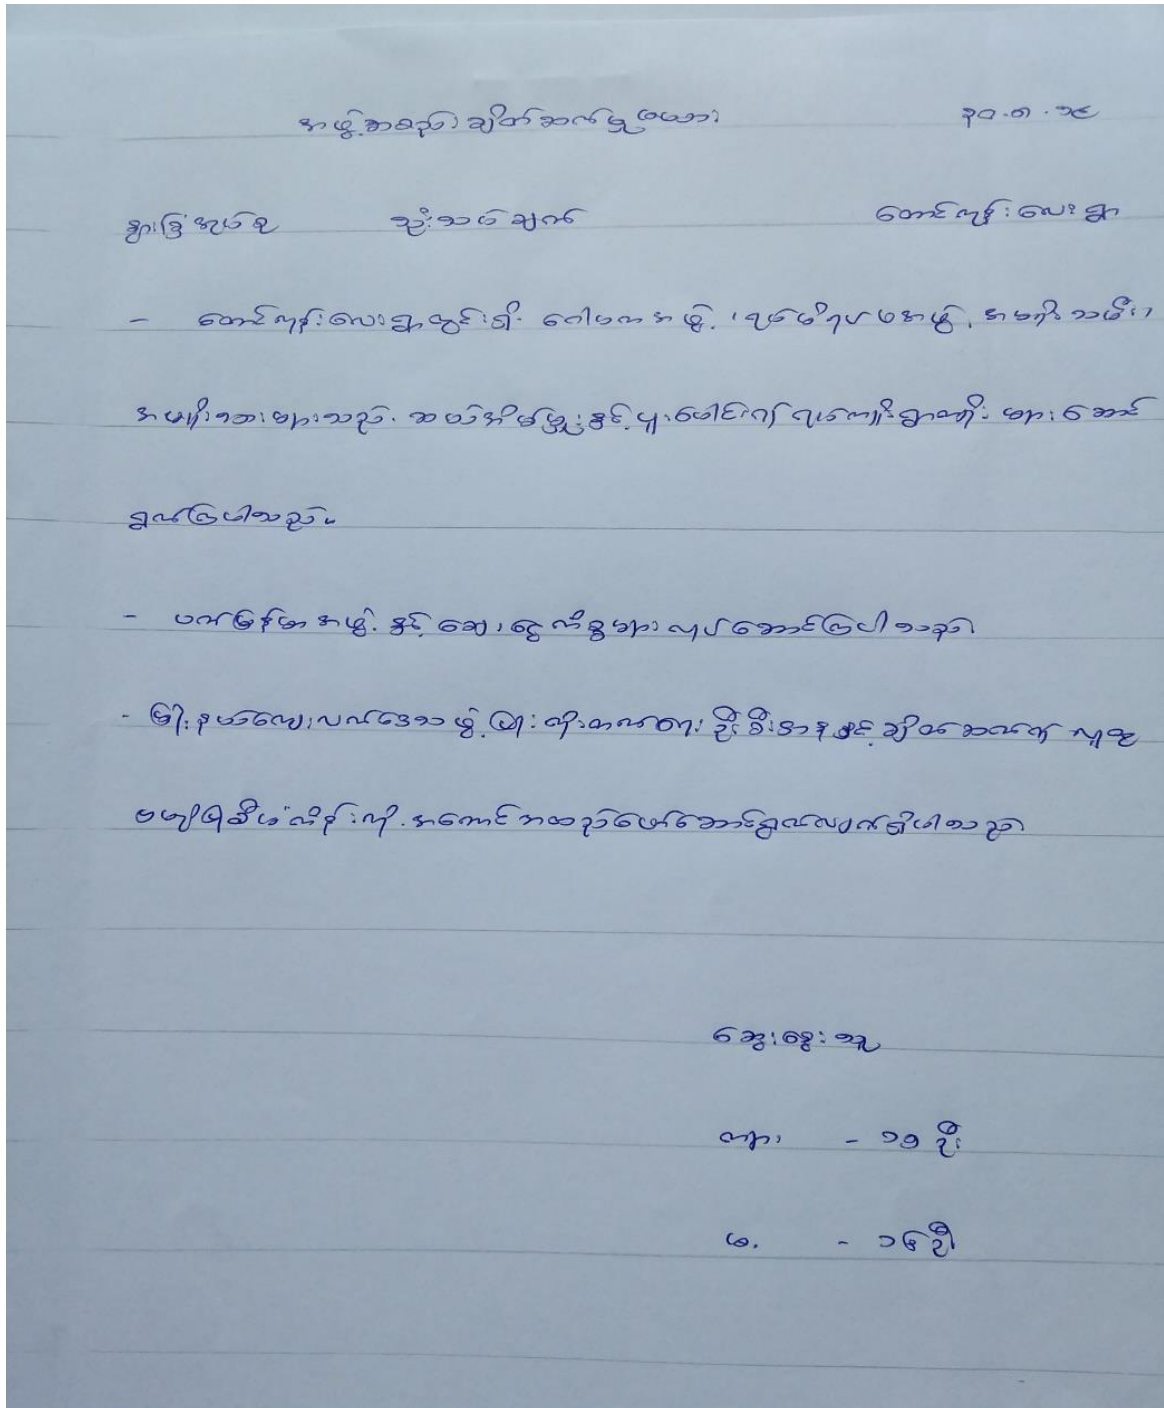 အဖွဲ့အစည်း ချိတ်ဆက်မှုဇယား ၃၁.၈.၁၄
နွားခြံအုပ်စု ဦးသစ်ချက် တောင်ကုန်းလေးရွာ
- တောင်ကုန်းလေးရွာတွင်ရှိ ဂေါပကအဖွဲ့၊ ရပ်မိရပ်ဖအဖွဲ့၊ အမျိုးသမီး၊
အမျိုးသားများသည် ဆယ်အိမ်မှူးနှင့် ပူးပေါင်း၍ ရပ်ကျိုးရွာကျိုးများ ဆောင်
ရွက်ကြပါသည်။
- ပက်မြန်မာအဖွဲ့နှင့် ချေး၊ ငွေကိစ္စများ လုပ်ဆောင်ကြပါသည်
- မြို့နယ်ကျေးလက်ဒေသဖွံ့ဖြိုးတိုးတက်ရေးဦးစီးဌာနနှင့် ချိတ်ဆက်၍ လူထု
ဗဟိုပြုစီမံကိန်းကို အကောင်အထည်ဖော်ဆောင်ရွက်လျက်ရှိပါသည်
ဆွေးနွေးသူ
ကျား - ၁၅ ဦး
မ - ၁၆ ဦး